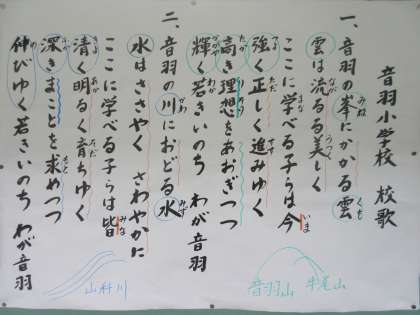 音羽小学校 校歌
一、音羽の峯にかかる雲
雲は流るる美しく
ここに学べる子らは今
強く正しく進みゆく
高き理想をあおぎつつ
輝く若きいのち わが音羽
二、音羽の川におどる水
水はささやく さわやかに
ここに学べる子らは皆
清く明るく育ちゆく
深きまことを求めつつ
伸びゆく若きいのち わが音羽
音羽山 牛尾山
山科川